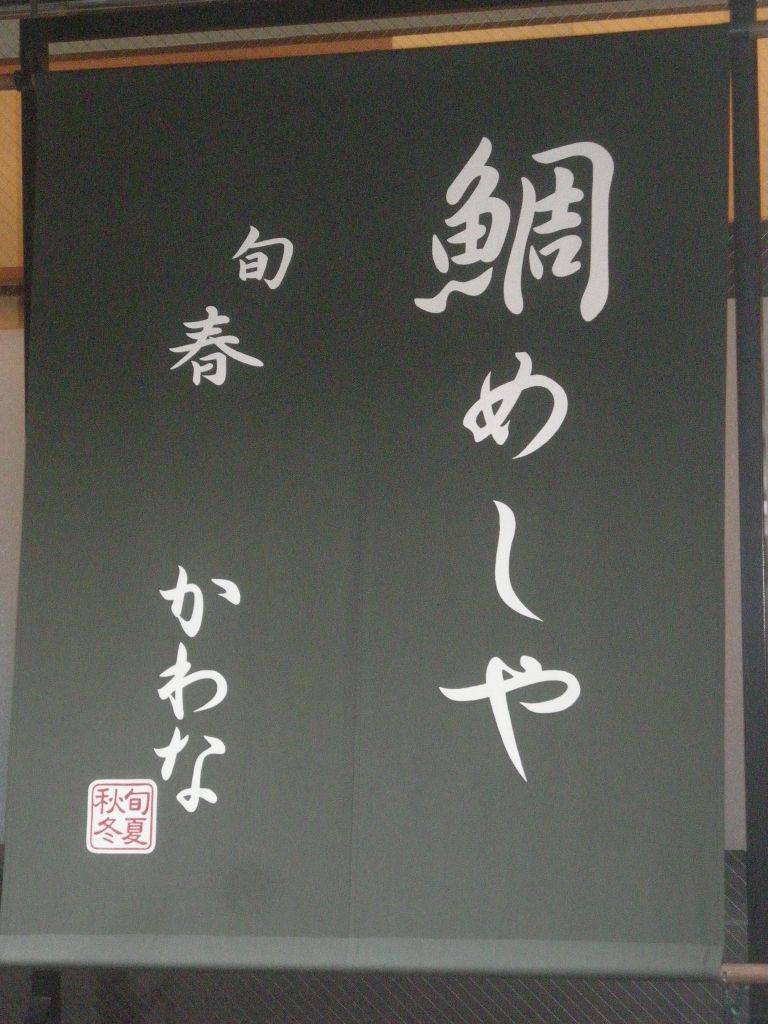 鯛めしや
旬
春
かわな
旬夏
秋冬